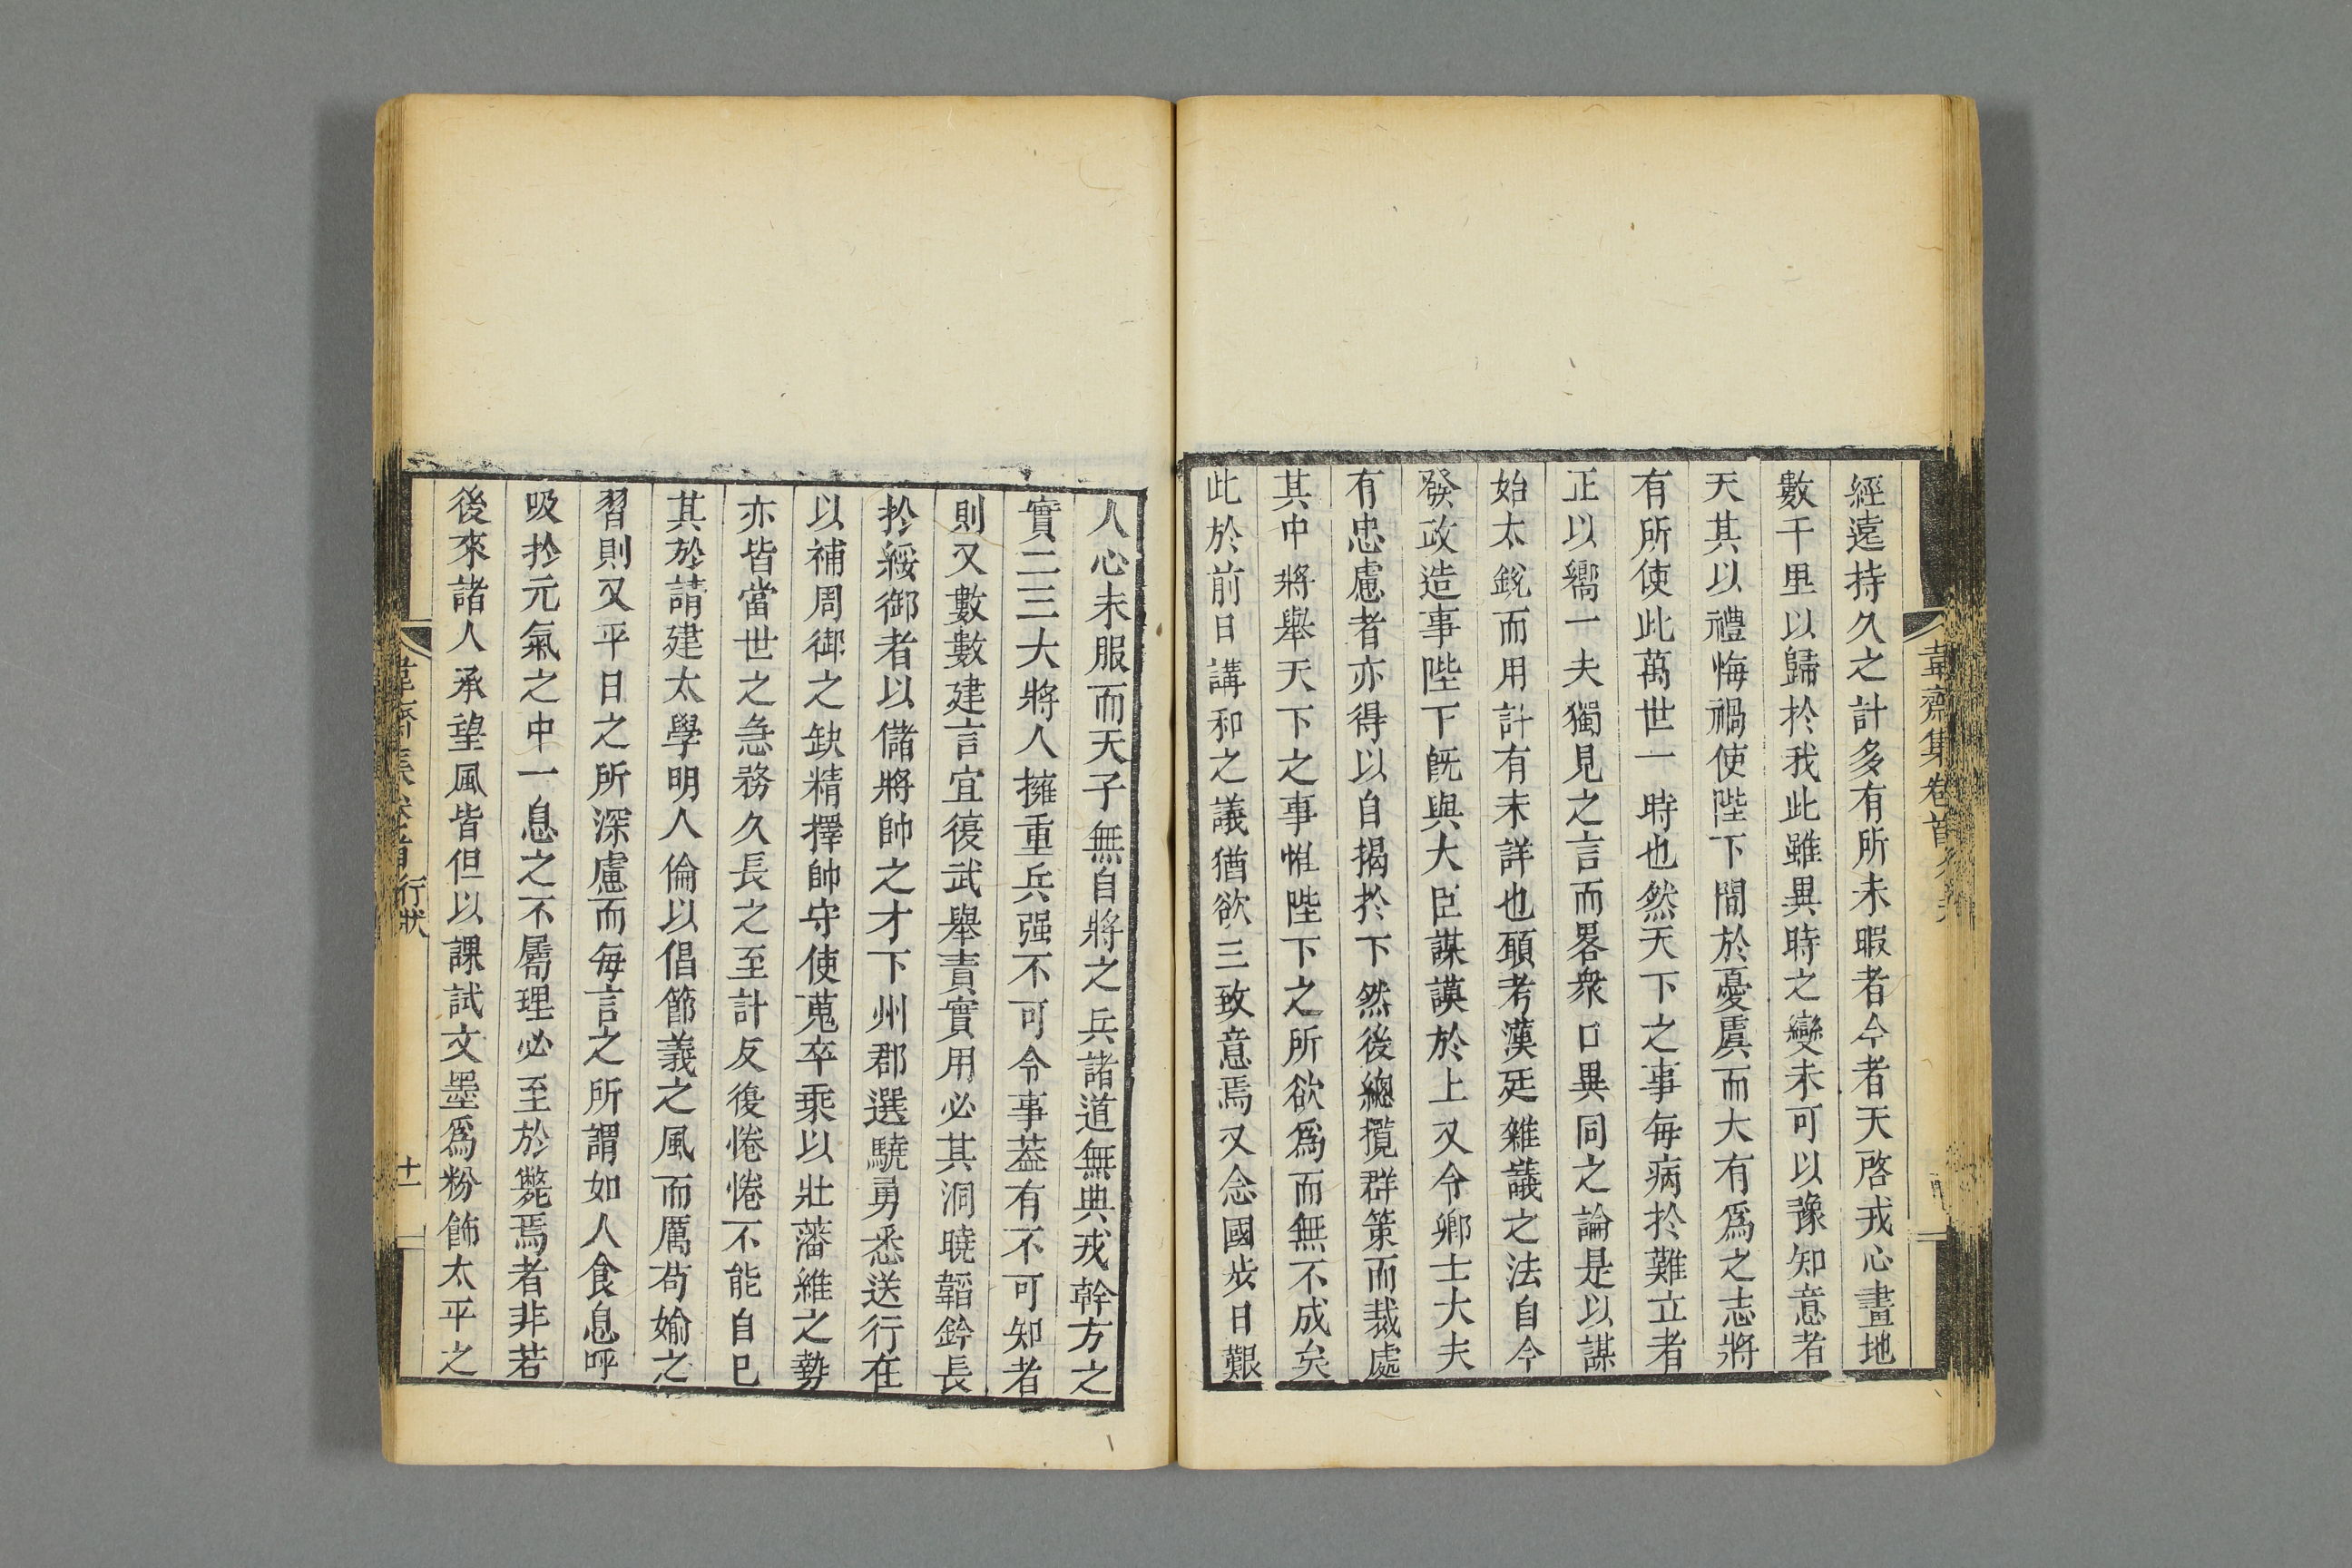 韋齋集卷首
經遠持久之計多有所未暇者今者天啓戎心畫地
數千里以歸扵我此雖異時之變未可以豫知意者
天其以禮悔禍使陛下閒於憂虞而大有爲之志將
有所使此萬世一時也然天下之事每病扵難立者
正以嚮一夫獨見之言而畧衆口異同之論是以謀
始太銳而用計有未詳也頋考漢廷雜議之法自今
發政造事陛下旣與大臣謀謨於上又令鄉士大夫
有忠慮者亦得以自揭扵下然後總攬群策而裁處
其中將舉天下之事惟陛下之所欲爲而無不成矣
此於前日講和之議猶欲三致意焉又念國步日艱
人心未服而天子無自將之兵諸道無典戎幹方之
實二三大將人擁重兵强不可令事葢有不可知者
則又數數建言宜復武舉責實用必其洞曉韜鈐長
扵綏御者以儲將帥之才下州郡選驍勇悉送行在
以補周御之缺精擇帥守使蒐卒乘以壯藩維之勢
亦皆當世之急務久長之至計反復惓惓不能自已
其於請建太學明人倫以倡節義之風而厲苟媮之
習則又平日之所深慮而每言之所謂如人食息呼
吸扵元氣之中一息之不屬理必至於斃焉者非若
後來諸人承望風皆但以課試文墨爲粉飾太平之
韋齋集卷首 行狀 十一